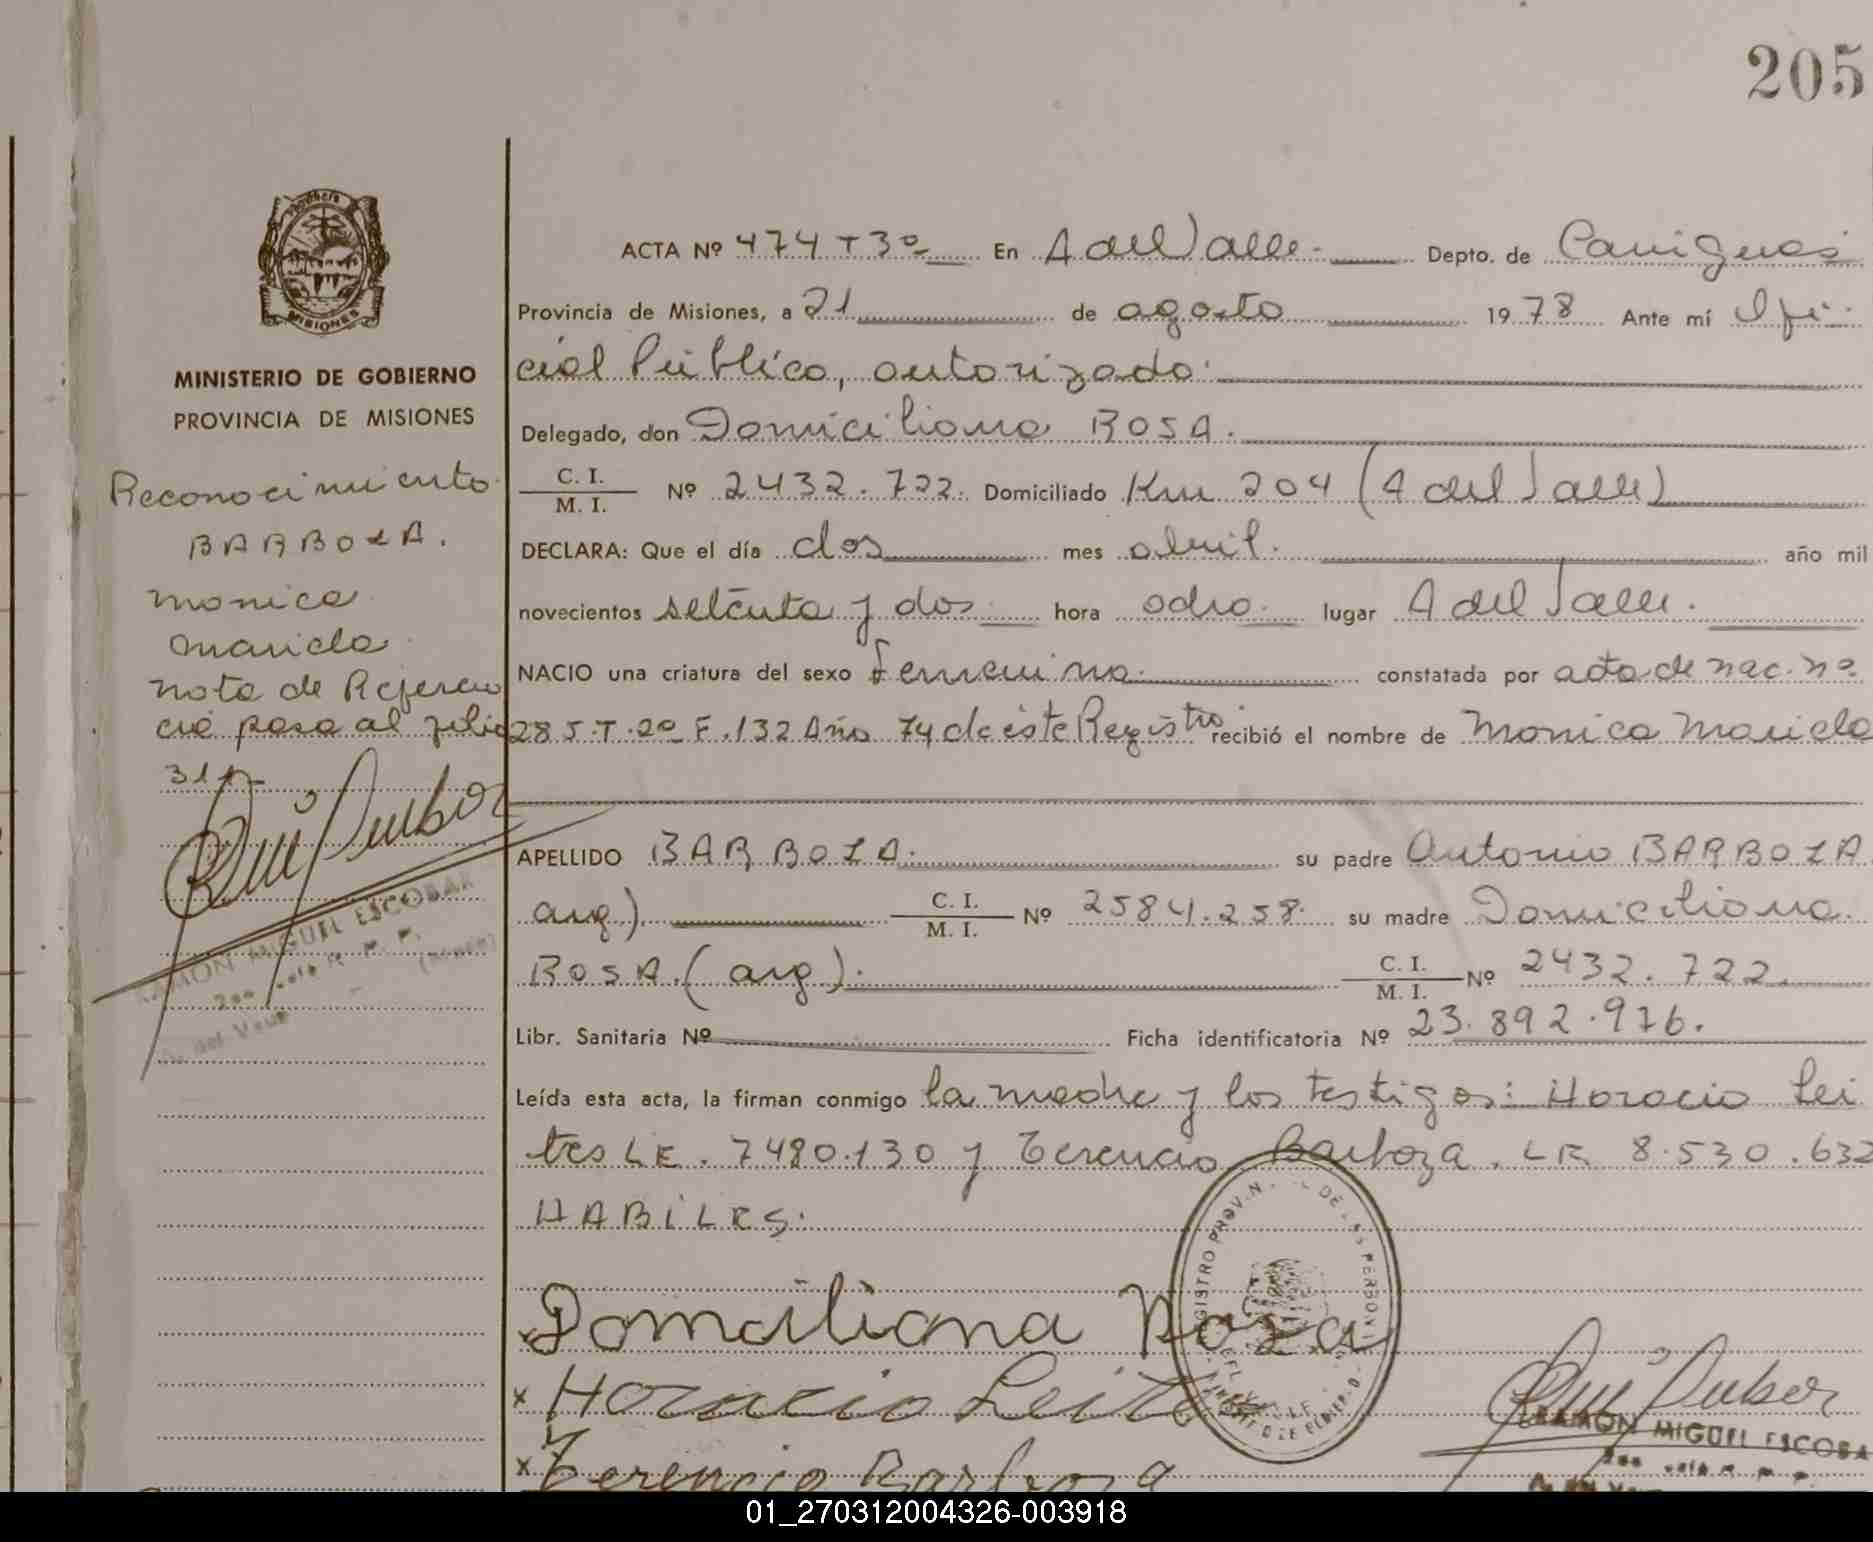 205
MISIONES
MINISTERIO DE GOBIERNO
PROVINCIA DE MISIONES
Reconocimiento
BARBOZA.
Monica
Mariela
nota de Referen
cia pasa al folio
311
RAMON MIGUEL ESCOBAR
A. del Valle
ACTA Nº 474 T 3º En A del Valle. Depto. de Cainguás
Provincia de Misiones, a 21 de agosto 1978 Ante mí Ofi
cial Público, autorizado.
Delegado, don Domiciliana BOSA.
C. I. / M. I. Nº 2432.722. Domiciliado Km 204 (A del Valle)
DECLARA: Que el día dos mes abril. año mil
novecientos setenta y dos hora ocho. lugar A del Valle.
NACIO una criatura del sexo femenino. constatada por acta de nac. nº
285.T.2º F.132 Año 74 de éste Registro. recibió el nombre de Monica Mariela
APELLIDO BARBOZA. su padre Antonio BARBOZA
arg). C. I. / M. I. Nº 2584.258. su madre Domiciliana.
BOSA.(arg). C. I. / M. I. Nº 2432.722.
Libr. Sanitaria Nº Ficha identificatoria Nº 23.892.976.
Leída esta acta, la firman conmigo la madre y los testigos: Horacio Lei
tes LE. 7480.130 y Terencio Barboza. LE 8.530.632
HABILES.
x Domiliana Roza
x Horacio Leite
x Terencio Barboza
RAMON MIGUEL ESCOBA
01_270312004326-003918